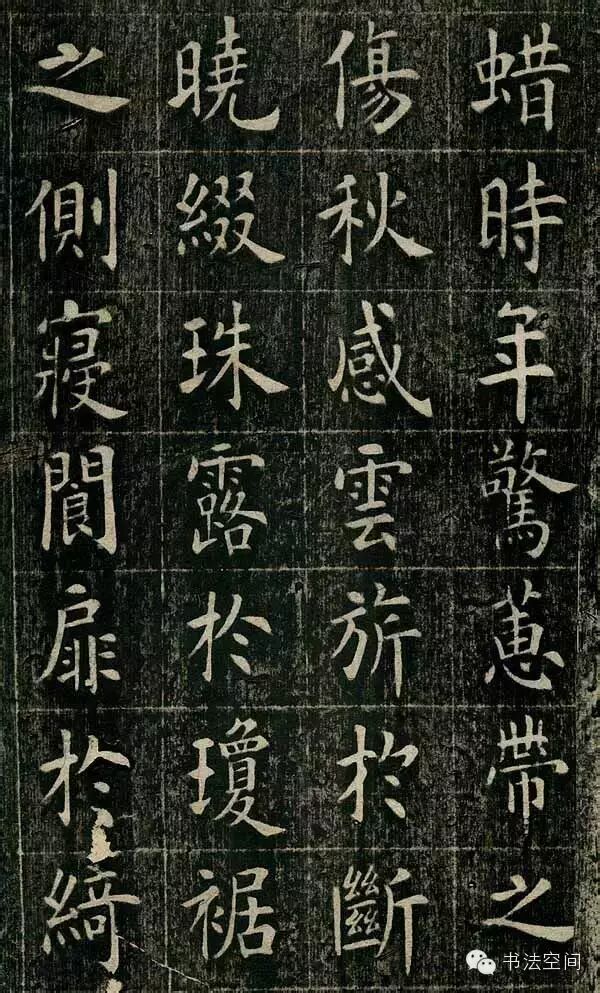 蜡時年驚蕙帶之
傷秋感雲旂於斷
曉綴珠露於瓊裾
之側寢閬扉於綺
书法空间